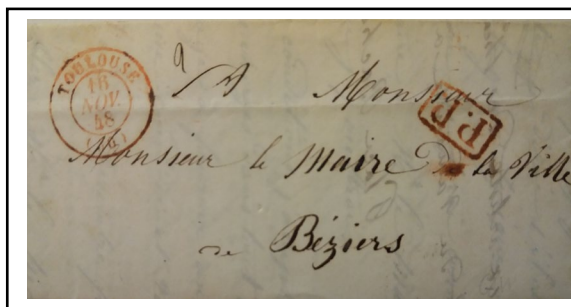 TOULOUSE
16
NOV.
48
A Monsieur
P.P.
Monsieur le Maire de la Ville
de Béziers